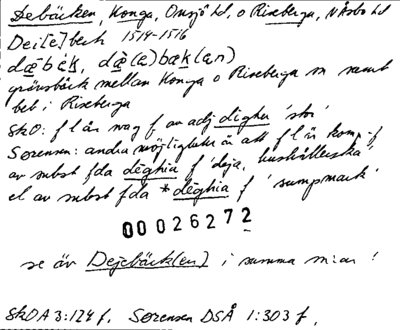 Debäcken, Konga, Onsjö hd, o Riseberga, N Åsbo hd
Dei[e]beck 1514-1516
dæ̀bèk, dæ̀(e)bæk(an)
gränsbäck mellan Konga o Riseberga sn samt
beb i Riseberga
SkO: f l är nog f av adj digher 'stor'
Sørensen: andra möjligheter är att f l är komp-f
av subst fda dēghia f 'deja, hushållerska'
el av subst fda *dēghia f 'sumpmark'
00026272
se äv Dejebäck(en) i samma m:an!
SkOA 3:124 f. Sørensen DSÅ 1:303 f.